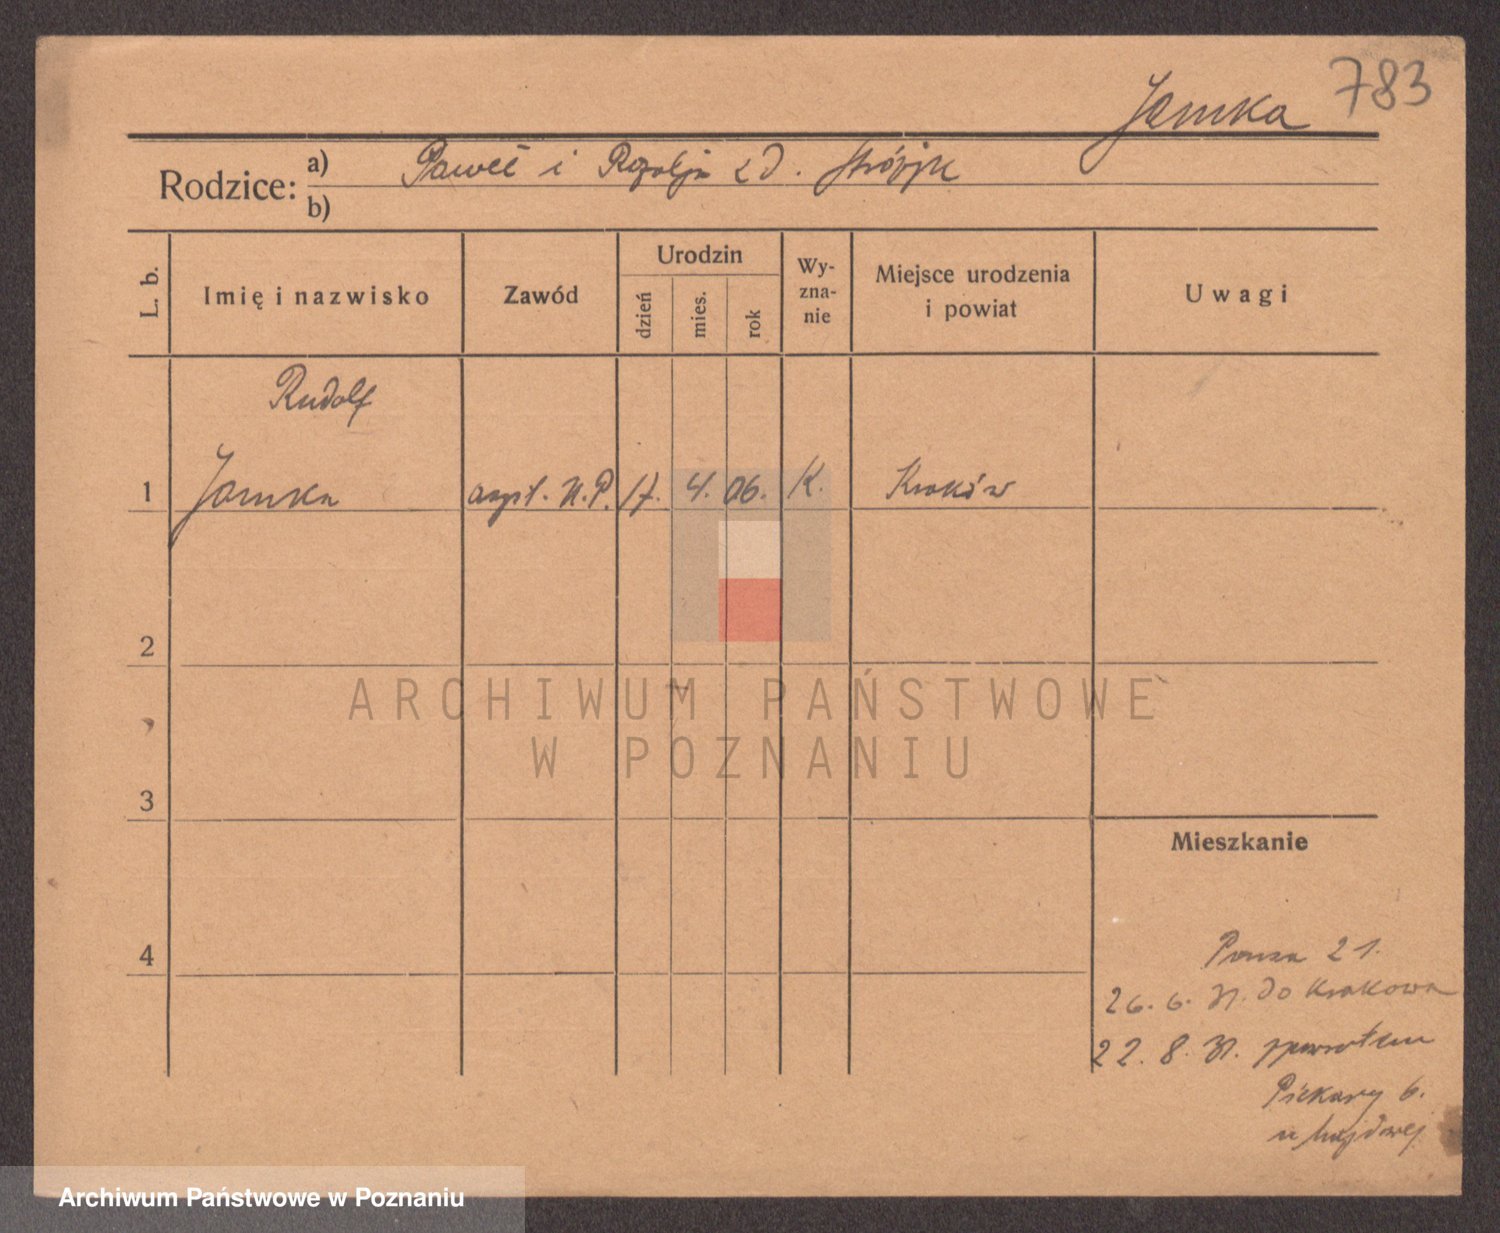 783
Jamka
Rodzice: a) Paweł i Rozalja z d. Strózik
b)
L. b.
Imię i nazwisko
Zawód
Urodzin
dzień
mies.
rok
Wy-
zna-
nie
Miejsce urodzenia
i powiat
Uwagi
Rudolf
1 Jamka asyst. U.P. 17. 4. 06. K. Kraków
2
3
4
ARCHIWUM PAŃSTWOWE
W POZNANIU
Mieszkanie
21.
26. 6. 31. do Krakowa
22. 8. 31. zpowrotem
Piekary 6.
u
Archiwum Państwowe w Poznaniu